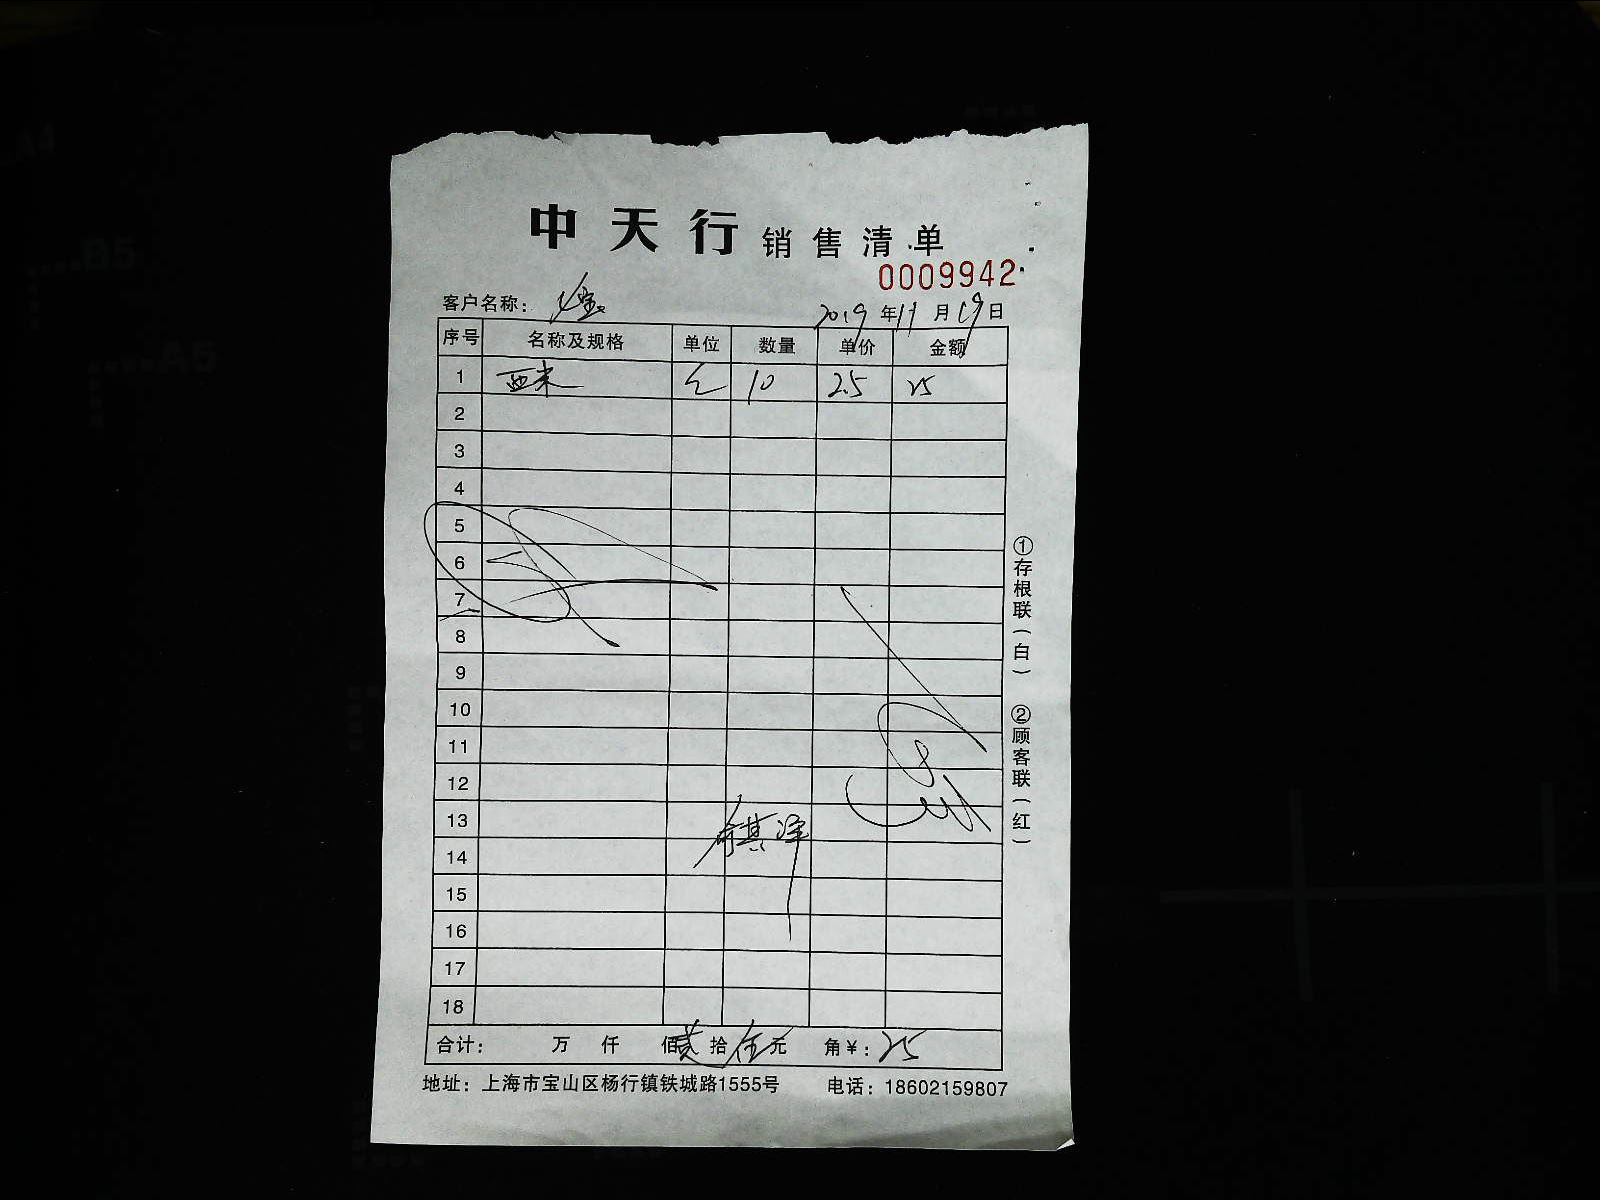 中天行销售清单
0009942
客户名称：
2019年11月19日
序号 名称及规格 单位 数量 单价 金额
1 西米 10 2.5 25
2
3
4
5
6
7
8
9
10
11
12
13
14
15
16
17
18
合计： 万 仟 佰贰拾伍元 角¥：25
地址：上海市宝山区杨行镇铁城路1555号 电话：18602159807
①存根联（白）
②顾客联（红）